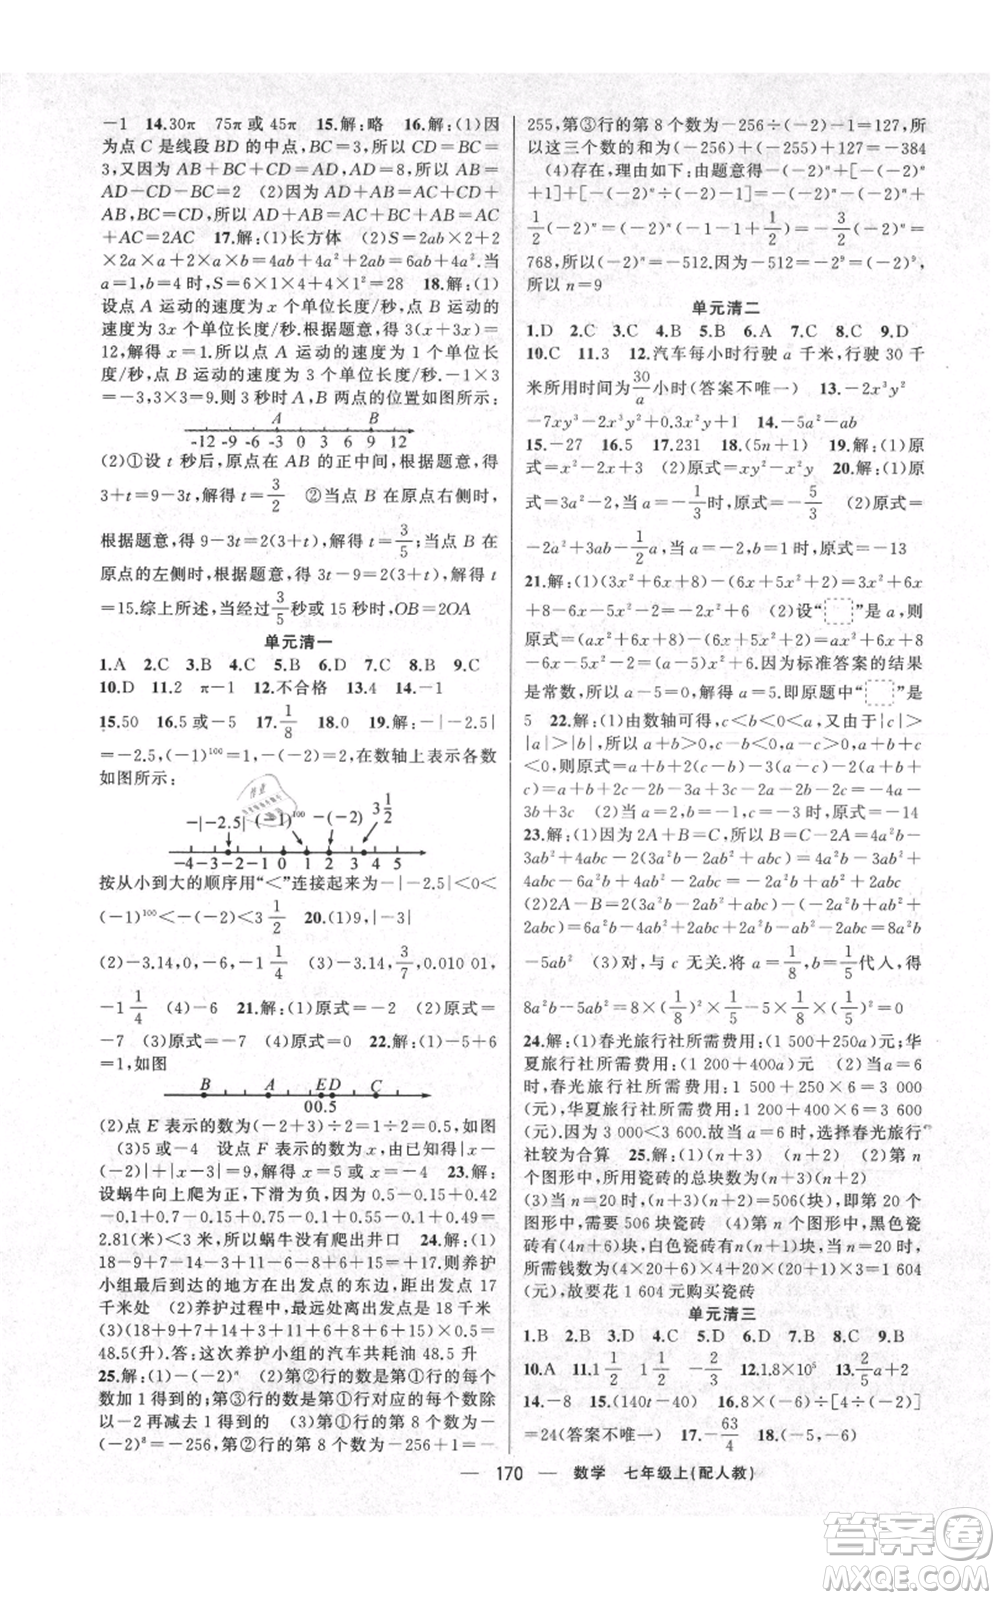 -1 14.30π 75π或45π 15.解:略 16.解:(1)因
为点C是线段BD的中点,BC=3,所以BC=CD=
3,又因为AB+BC+CD=AD,AD=8,所以AB=
AD-CD-BC=2 (2)因为AD+AB=AC+CD+
AB,BC=CD,所以AD+AB=AC+BC+AB=AC
+AC=2AC 17.解:(1)长方体 (2)S=2ab×2+2
×2a×2a+2a×b×2=4ab+4a²+2ab=6ab+4a².当
a=1,b=4时,S=6×1×4+4×1²=28 18.解:(1)
设点A运动的速度为x个单位长度/秒,点B运动的
速度为3x个单位长度/秒.根据题意,得3(x+3x)=
12,解得x=1.所以点A运动的速度为1个单位长
度/秒,点B运动的速度为3个单位长度/秒.-1×3
=-3,3×3=9.则3秒时A,B两点的位置如图所示:
A B
-12 -9 -6 -3 0 3 6 9 12
(2)①设t秒后,原点在AB的正中间,根据题意,得
3+t=9-3t,解得t=3/2 ②当点B在原点右侧时,
根据题意,得9-3t=2(3+t),解得t=3/5;当点B在
原点的左侧时,根据题意,得3t-9=2(t+3),解得t
=15.综上所述,当经过3/5秒或15秒时,OB=2OA
单元清一
1.A 2.C 3.B 4.C 5.B 6.D 7.C 8.B 9.C
10.D 11.2 π-1 12.不合格 13.4 14.-1
15.50 16.5或-5 17.1/8 18.0 19.解:-|-2.5|
=-2.5,(-1)¹⁰⁰=1,-(-2)=2,在数轴上表示各数
如图所示:
-|-2.5| (-1)¹⁰⁰ -(-2) 3 1/2
-4 -3 -2 -1 0 1 2 3 4 5
按从小到大的顺序用“<”连接起来为-|-2.5|<0<
(-1)¹⁰⁰<-(-2)<3 1/2 20.(1)9,|-3|
(2)-3.14,0,-6,-1 1/4 (3)-3.14,3/7,0.010 01,
-1 1/4 (4)-6 21.解:(1)原式=-2 (2)原式=
-7 (3)原式=-7 (4)原式=0 22.解:(1)-5+6
=1,如图
B A E D C
0 0.5
(2)点E表示的数为(-2+3)÷2=1÷2=0.5,如图
(3)5或-4 设点F表示的数为x,由已知得|x-
(-2)|+|x-3|=9,解得x=5或x=-4 23.解:
设蜗牛向上爬为正,下滑为负,则0.5-0.1+0.42
-0.1+0.7-0.15+0.75-0.1+0.55+0.48=
2.81(米)<3米,所以蜗牛没有爬出井口 24.解:(1)
18-9+7-14-3+11-6-8+6+15=+17,则养护
小组最后到达的地方在出发点的东边,距出发点17
千米处 (2)养护过程中,最远处离出发点是18千米
(3)(18+9+7+14+3+11+6+8+6+15)×0.5=
48.5(升).答:这次养护小组的汽车共耗油48.5升
25.解:(1)-(-2)ⁿ (2)第②行的数是第①行的每个
数加1得到的;第③行的数是第①行对应的每个数除
以-2再减去1得到的 (3)第①行的第8个数为-
(-2)⁸=-256,第②行的第8个数为-256+1=-
255,第③行的第8个数为-256÷(-2)-1=127,所
以这三个数的和为(-256)+(-255)+127=-384
(4)存在,理由如下:由题意得-(-2)ⁿ+[-(-2)ⁿ
+1]+[-(-2)ⁿ÷(-2)-1]=-(-2)ⁿ-(-2)ⁿ+
1/2(-2)ⁿ=(-2)ⁿ×(-1-1+1/2)=-3/2(-2)ⁿ=
768,所以(-2)ⁿ=-512.因为-512=-2⁹=(-2)⁹,
所以n=9
单元清二
1.D 2.C 3.C 4.B 5.B 6.A 7.C 8.C 9.D
10.C 11.3 12.汽车每小时行驶a千米,行驶30千
米所用时间为30/a小时(答案不唯一) 13.-2x³y²
-7xy³-2x³y²+0.3x⁴y 14.-5a²-ab
15.-27 16.5 17.231 18.(5n+1) 19.解:(1)原
式=x²-2x+3 (2)原式=xy²-x²y 20.解:(1)原
式=3a²-2,当a=-1/3时,原式=-5/3 (2)原式=
-2a²+3ab-1/2a,当a=-2,b=1时,原式=-13
21.解:(1)(3x²+6x+8)-(6x+5x²+2)=3x²+6x
+8-6x-5x²-2=-2x²+6 (2)设“ ”是a,则
原式=(ax²+6x+8)-(6x+5x²+2)=ax²+6x+8
-6x-5x²-2=(a-5)x²+6,因为标准答案的结果
是常数,所以a-5=0,解得a=5.即原题中“ ”是
5 22.解:(1)由数轴可得,c<b<0<a,又由于|c|>
|a|>|b|,所以a-b>0,c-b<0,b-a<0,a+c
<0,则原式=a-b+2(c-b)-(b-a)+3(a+c)=
a-b+2c-2b-b+a+3a+3c=a+a+3a-b-2b-
b+2c+3c=5a-4b+5c
23.解:(1)因为2A+B=C,所以B=C-2A=4a²b-
3ab²+4abc-2(3a²b-2ab²+abc)=4a²b-3ab²
+4abc-6a²b+4ab²-2abc=-2a²b+ab²+2abc
(2)2A-B=2(3a²b-2ab²+abc)-(-2a²b+ab²+
2abc)=6a²b-4ab²+2abc+2a²b-ab²-2abc=8a²b
-5ab² (3)对,与c无关.将a=1/8,b=1/5代入,得
8a²b-5ab²=8×(1/8)²×1/5-5×1/8×(1/5)²=0
24.解:(1)春光旅行社所需费用:(1 500+250a)元;华
夏旅行社所需费用:(1 200+400a)元 (2)当a=6
时,春光旅行社所需费用:1 500+250×6=3 000
(元),华夏旅行社所需费用:1 200+400×6=3 600
(元).因为3 000<3 600,所以当a=6时,选择春光旅行
社较为合算 25.解:(1)(n+3) (n+2) (2)第n
个图形中,所用瓷砖的总块数为(n+2)(n+3)
(3)当n=20时,(n+2)(n+3)=506(块),即第20个
图形中,需要506块瓷砖 (4)第n个图形中,黑色瓷
砖有(4n+6)块,白色瓷砖有n(n+1)块,当n=20时,
所需钱数为(4×20+6)×4+20×(20+1)×3=1 604
(元),故要花1 604元购买瓷砖
单元清三
1.B 2.B 3.D 4.D 5.C 6.B 7.C 8.A 9.B
10.A 11.1 1/2 1 -2/3 12.1.8×10⁵ 13.2/5a+2
14.-8 15.(140t-40) 16.3×(-6)÷[4÷(-3)]
=24(答案不唯一) 17.-63/4 18.(-5,-6)
— 170 — 数学 七年级上(配人教)
答案卷
MXQE.COM